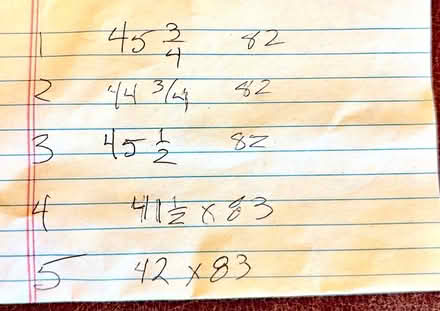 1 45 3/4 82
2 44 3/4 82
3 45 1/2 82
4 41 1/2 x 83
5 42 x 83